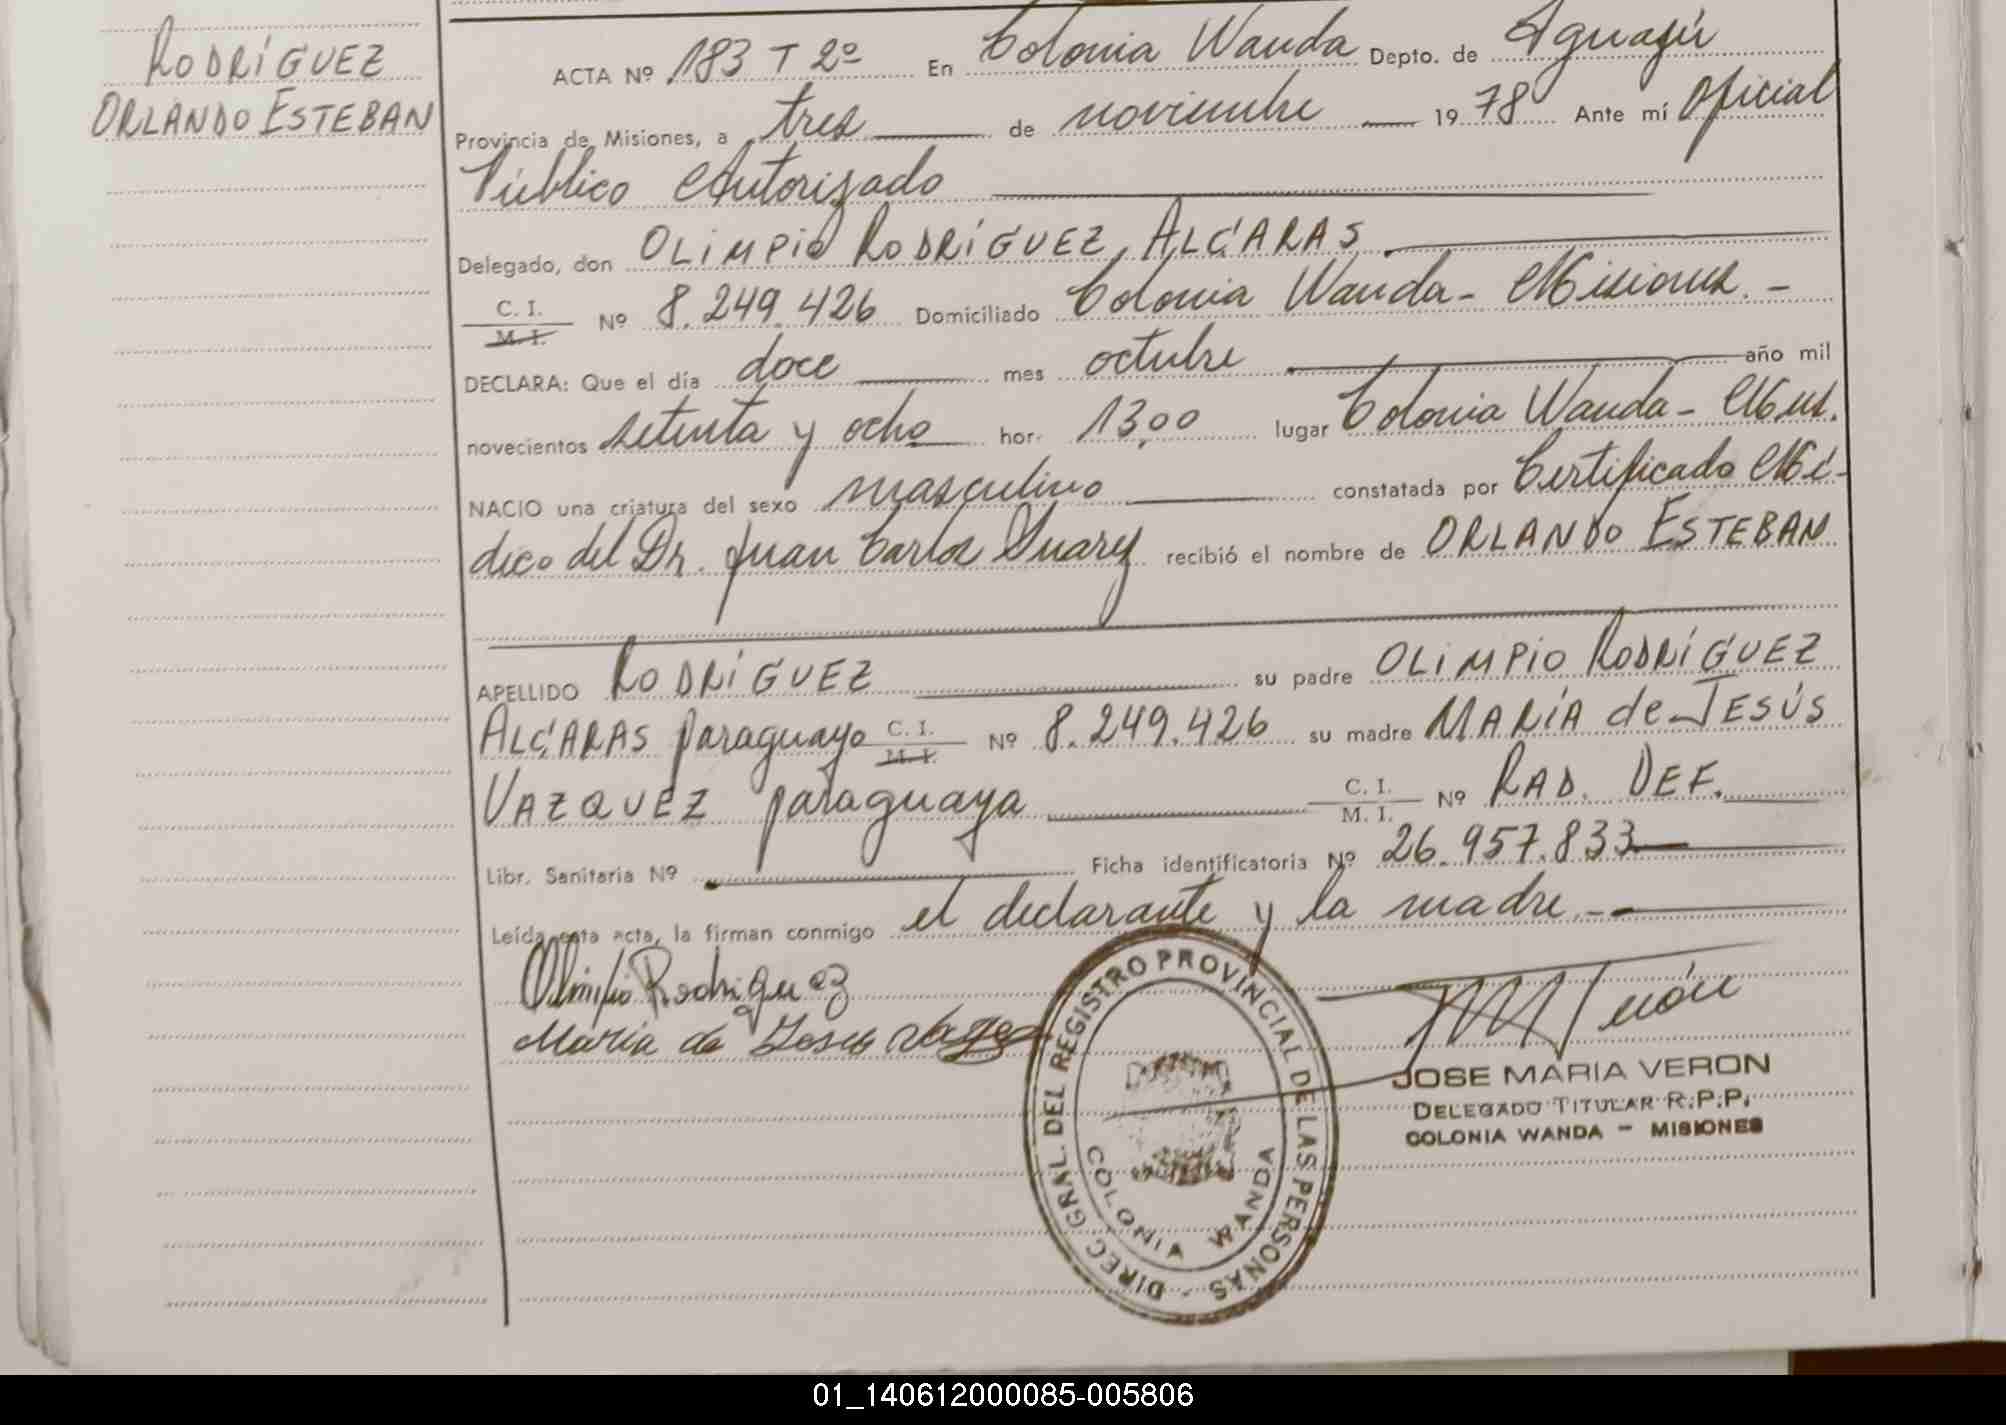 RODRÍGUEZ
ORLANDO ESTEBAN
ACTA Nº 183 T 2º En Colonia Wanda Depto. de Iguazú
Provincia de Misiones, a tres de noviembre 1978 Ante mí Oficial
Público Autorizado
Delegado, don OLIMPIO RODRÍGUEZ ALCARAS
C. I. / M. I. Nº 8.249.426 Domiciliado Colonia Wanda - Misiones. -
DECLARA: Que el día doce mes octubre año mil
novecientos setenta y ocho hor. 13,00 lugar Colonia Wanda - Mnes.
NACIO una criatura del sexo masculino constatada por Certificado Mé-
dico del Dr. Juan Carlos Suarez recibió el nombre de ORLANDO ESTEBAN
APELLIDO RODRÍGUEZ su padre OLIMPIO RODRÍGUEZ
ALCARAS paraguayo C. I. / M. I. Nº 8.249.426 su madre MARÍA de JESÚS
VAZQUEZ paraguaya C. I. / M. I. Nº RAD. DEF.
Libr. Sanitaria Nº Ficha identificatoria Nº 26.957.833
Leída esta acta, la firman conmigo el declarante y la madre. -
Olimpio Rodriguez
Maria de Jesus
DIREC. GRAL. DEL REGISTRO PROVINCIAL DE LAS PERSONAS -
COLONIA WANDA
JOSE MARIA VERON
DELEGADO TITULAR R.P.P.
COLONIA WANDA - MISIONES
01_140612000085-005806